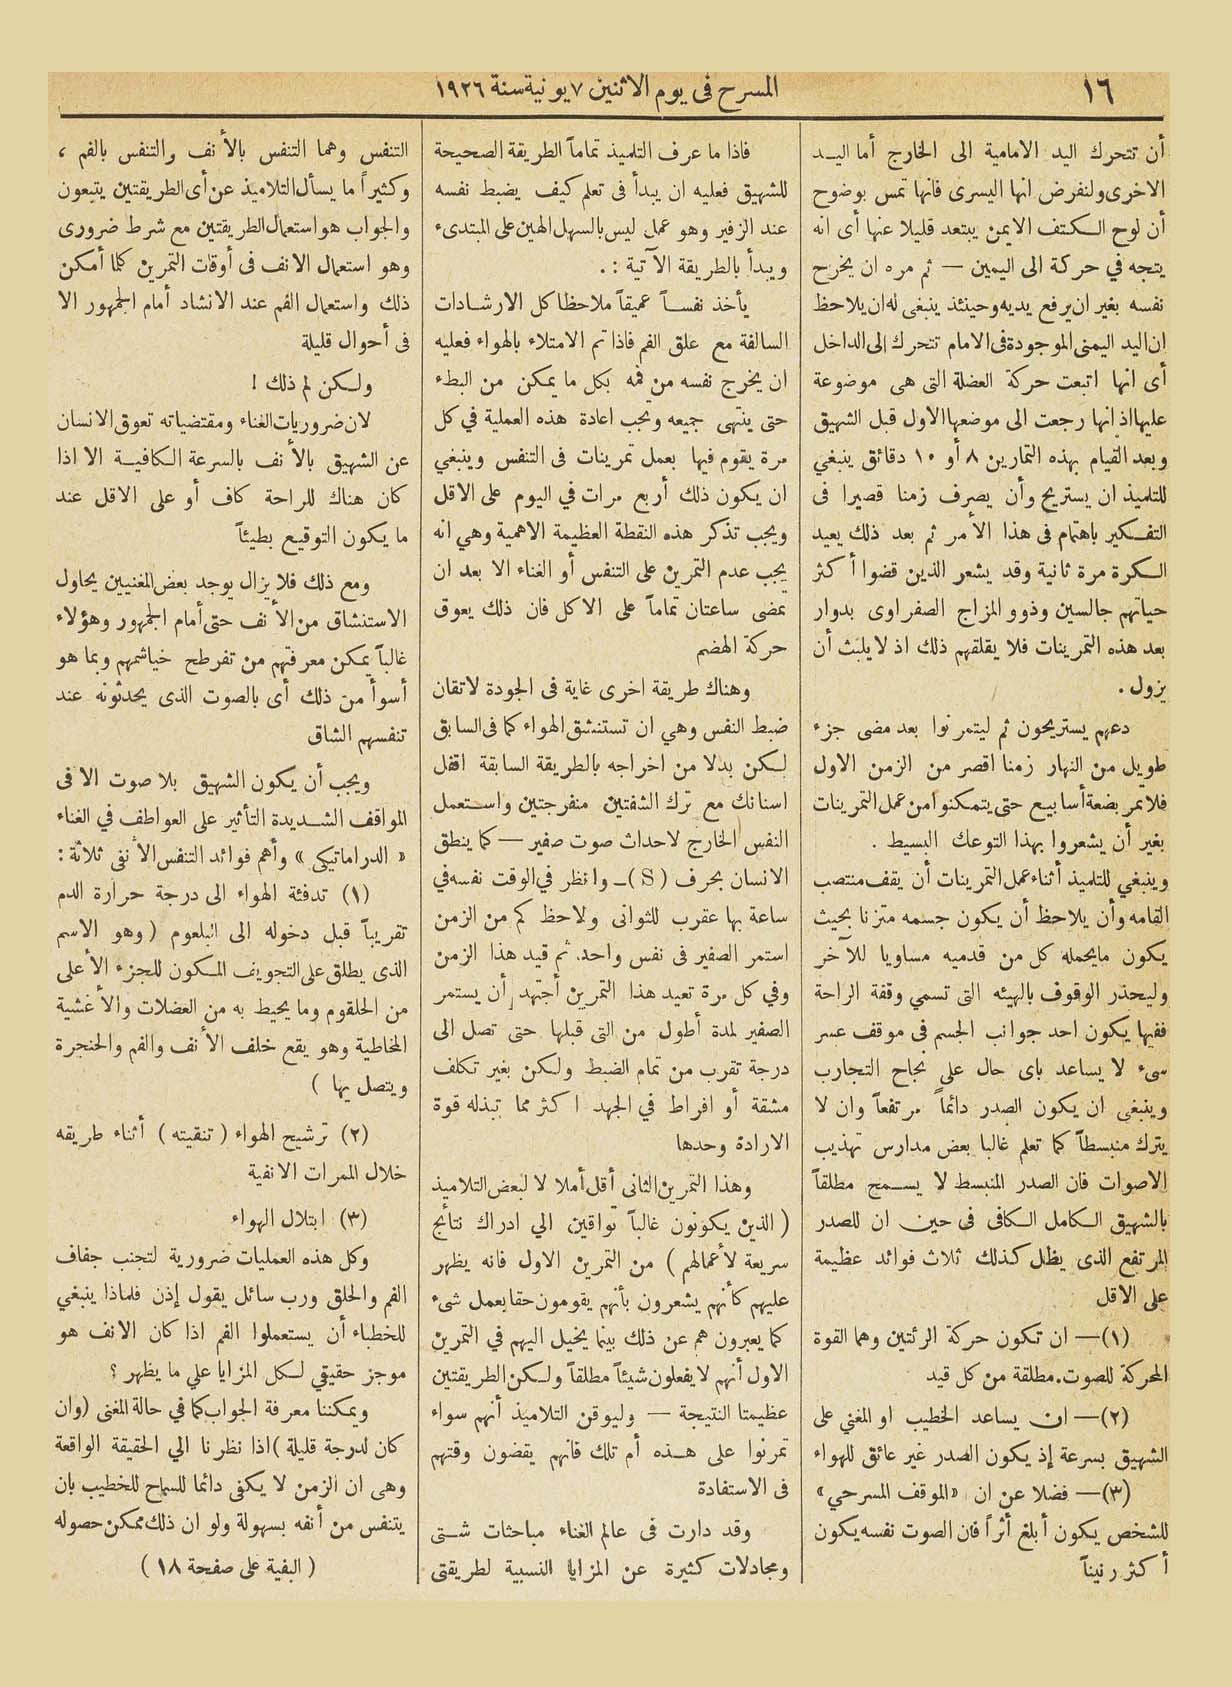 ١٦
المسرح فى يوم الاثنين ٧ يونية سنة ١٩٢٦
أن تتحرك اليد الامامية الى الخارج أما اليد
الاخرى ولنفرض انها اليسرى فانها تمس بوضوح
أن لوح الكتف الايمن يبتعد قليلا عنها أى انه
يتجه في حركة الى اليمين — ثم مره ان يخرج
نفسه بغير ان يرفع يديه وحينئذ ينبغى له ان يلاحظ
ان اليد اليمنى الموجودة فى الامام تتحرك الى الداخل
أى انها اتبعت حركة العضلة التى هى موضوعة
عليها اذ انها رجعت الى موضعها الاول قبل الشهيق
وبعد القيام بهذه التمارين ٨ أو ١٠ دقائق ينبغي
للتلميذ ان يستريح وأن يصرف زمنا قصيرا فى
التفكير باهتمام فى هذا الأمر ثم بعد ذلك يعيد
الكرة مرة ثانية وقد يشعر الذين قضوا أكثر
حياتهم جالسين وذوو المزاج الصفراوى بدوار
بعد هذه التمرينات فلا يقلقهم ذلك اذ لا يلبث أن
يزول .
دعهم يستريحون ثم ليتمرنوا بعد مضى جزء
طويل من النهار زمنا اقصر من الزمن الاول
فلا تمر بضعة أسابيع حتى يتمكنوا من عمل التمرينات
بغير أن يشعروا بهذا التوعك البسيط .
وينبغي للتلميذ أثناء عمل التمرينات أن يقف منتصب
القامه وأن يلاحظ أن يكون جسمه متزنا بحيث
يكون مايحمله كل من قدميه مساويا للآخر
وليحذر الوقوف بالهيئه التى تسمي وقفة الراحة
ففيها يكون احد جوانب الجسم فى موقف عسر
سىء لا يساعد باى حال على نجاح التجارب
وينبغى ان يكون الصدر دائماً مرتفعاً وان لا
يترك منبسطاً كما تعلم غالبا بعض مدارس تهذيب
الاصوات فان الصدر المنبسط لا يسمح مطلقاً
بالشهيق الكامل الكافى فى حين ان للصدر
المرتفع الذى يظل كذلك ثلاث فوائد عظيمة
على الاقل
(١)— ان تكون حركة الرئتين وهما القوة
المحركة للصوت . مطلقة من كل قيد
(٢)— ان يساعد الخطيب او المغني على
الشهيق بسرعة إذ يكون الصدر غير عائق للهواء
(٣)— فضلا عن ان «الموقف المسرحي»
للشخص يكون أبلغ أثراً فان الصوت نفسه يكون
أكثر رنيناً
فاذا ما عرف التلميذ تماماً الطريقة الصحيحة
للشهيق فعليه ان يبدأ فى تعلم كيف يضبط نفسه
عند الزفير وهو عمل ليس بالسهل الهين على المبتدىء
ويبدأ بالطريقة الآتية : .
يأخذ نفساً عميقاً ملاحظا كل الارشادات
السالفة مع علق الفم فاذا تم الامتلاء بالهواء فعليه
ان يخرج نفسه من فمه بكل ما يمكن من البطء
حتى ينتهى جميعه ويجب اعادة هذه العملية في كل
مرة يقوم فيها بعمل تمرينات فى التنفس وينبغي
ان يكون ذلك أربع مرات في اليوم على الاقل
ويجب تذكر هذه النقطة العظيمة الاهمية وهي انه
يجب عدم التمرين على التنفس أو الغناء الا بعد ان
يمضى ساعتان تماماً على الاكل فان ذلك يعوق
حركة الهضم
وهناك طريقة اخرى غاية فى الجودة لاتقان
ضبط النفس وهي ان تستنشق الهواء كما فى السابق
لكن بدلا من اخراجه بالطريقة السابقة اقفل
اسنانك مع ترك الشفتين منفرجتين واستعمل
النفس الخارج لاحداث صوت صفير — كما ينطق
الانسان بحرف (S) — وانظر في الوقت نفسه في
ساعة بها عقرب للثوانى ولاحظ كم من الزمن
استمر الصفير فى نفس واحد. ثم قيد هذا الزمن
وفي كل مرة تعيد هذا التمرين أجتهد أن يستمر
الصفير لمدة أطول من التى قبلها حتى تصل الى
درجة تقرب من تمام الضبط ولكن بغير تكلف
مشقة أو افراط في الجهد اكثر مما تبذله قوة
الارادة وحدها
وهذا التمرين الثانى أقل أملا لا لبعض التلاميذ
( الذين يكونون غالباً تواقين الي ادراك نتائج
سريعة لأعمالهم ) من التمرين الاول فانه يظهر
عليهم كأنهم يشعرون بأنهم يقومون حقا بعمل شىء
كما يعبرون هم عن ذلك بينما يخيل اليهم في التمرين
الاول أنهم لا يفعلون شيئاً مطلقاً ولكن الطريقتين
عظيمتا النتيجة — وليوقن التلاميذ أنهم سواء
تمرنوا على هذه أم تلك فانهم يقضون وقتهم
فى الاستفادة
وقد دارت فى عالم الغناء مباحثات شتى
ومجادلات كثيرة عن المزايا النسبية لطريقتى
التنفس وهما التنفس بالأنف والتنفس بالفم ،
وكثيراً ما يسأل التلاميذ عن أى الطريقتين يتبعون
والجواب هو استعمال الطريقتين مع شرط ضرورى
وهو استعمال الانف فى أوقات التمرين كلما أمكن
ذلك واستعمال الفم عند الانشاد أمام الجمهور الا
فى أحوال قليلة
ولكن لم ذلك !
لان ضروريات الغناء ومقتضياته تعوق الانسان
عن الشهيق بالأنف بالسرعة الكافية الا اذا
كان هناك للراحة كاف أو على الاقل عند
ما يكون التوقيع بطيئاً
ومع ذلك فلا يزال يوجد بعض المغنيين يحاول
الاستنشاق من الأنف حتى أمام الجمهور وهؤلاء
غالباً يمكن معرفتهم من تفرطح خياشمهم وبما هو
أسوأ من ذلك أى بالصوت الذى يحدثونه عند
تنفسهم الشاق
ويجب أن يكون الشهيق بلا صوت الا فى
المواقف الشديدة التأثير على العواطف في الغناء
« الدراماتيكى » وأهم فوائد التنفس الأنفى ثلاثة :
(١) تدفئة الهواء الى درجة حرارة الدم
تقريباً قبل دخوله الى البلعوم ( وهو الاسم
الذى يطلق على التجويف المكون للجزء الأعلى
من الحلقوم وما يحيط به من العضلات والأغشية
المخاطية وهو يقع خلف الأنف والفم والحنجرة
ويتصل بها )
(٢) ترشيح الهواء ( تنقيته ) أثناء طريقه
خلال الممرات الانفية
(٣) ابتلال الهواء
وكل هذه العمليات ضرورية لتجنب جفاف
الفم والحلق ورب سائل يقول إذن فلماذا ينبغي
للخطباء أن يستعملوا الفم اذا كان الانف هو
موجز حقيقي لكل المزايا علي ما يظهر ؟
ويمكننا معرفة الجواب كما في حالة المغنى (وان
كان لدرجة قليلة ) اذا نظرنا الي الحقيقة الواقعة
وهى ان الزمن لا يكفى دائما للسماح للخطيب بان
يتنفس من أنفه بسهولة ولو ان ذلك ممكن حصوله
( البقية على صفحة ١٨ )